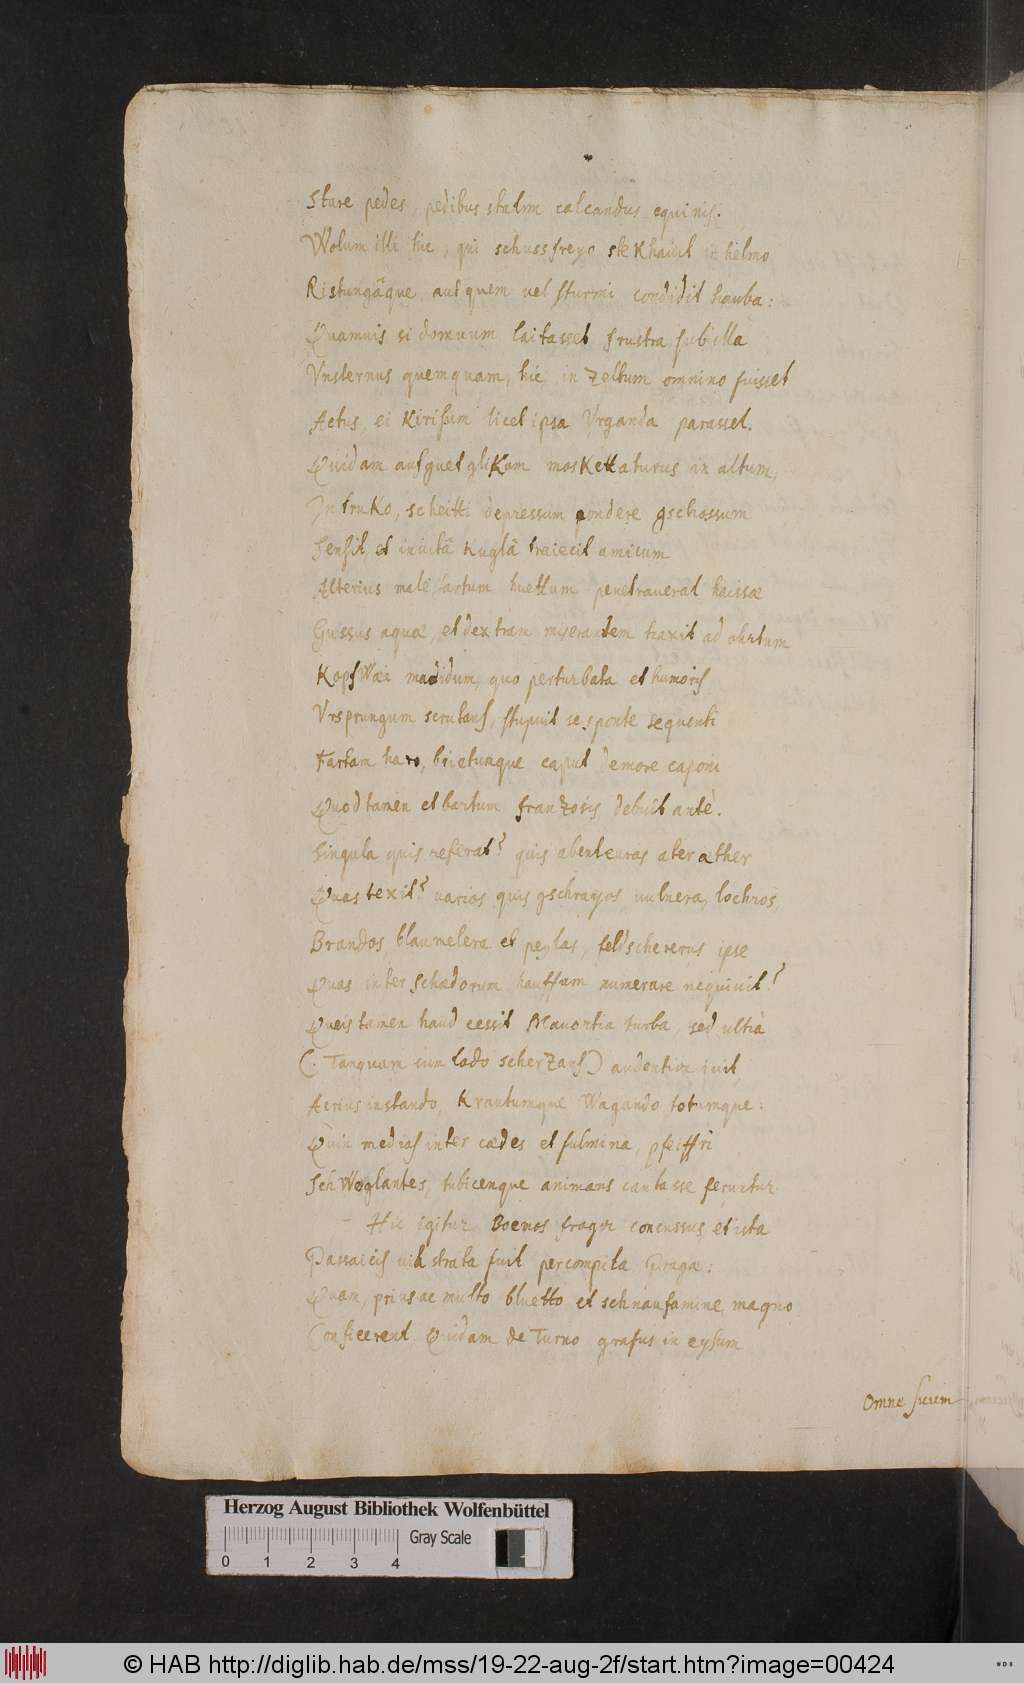 Stare pedes, pedibus statim calcandus equinis.
Wolum illi hic, qui schussfreyo stekkhaidit in helmo
Ristungâque, aut quem uel sturmi condidit hauba:
Quamuis si domuum laitasset frustra sub illa
Vnsternus quemquam, hic in Zeltum omnino fuisset
Actus, ei Kirisum licet ipsa Vrganda parasset.
Quidam ausguetgliKam mosKettaturus in altum,
In truKo, scheitti depressum pondere gschossum
Sensit, et inuitâ Kuglâ traiecit amicum
Alterius male fartum huettum penetrauerat haissæ
Gussus aquæ, et dextram miserantem traxit ad ohrtum
KopfWæi madidum, quo perturbata et humoris
Vrsprungum scrutans, stupuit se sponte sequenti
Fartam haro, brietumque caput de more caponi
Quod tamen et bartum franzosis debuit antè.
Singula quis referat? quis abenteuras ater æther
Quas texit? varias quis gschrayos uulnera, lochros,
Brandos blaumelera et peylas, feldschererus ipse
Quas inter Schædorum hauffum numerare nequiuit?
Queis tamen haud cessit Mauortia turba, sed ultrà
(. Tanquam cum todo scherZans) audentior iuit,
Acrius instando, Krautumque Wagando totumque:
Quin medias inter cædes et fulmina, pfeiffri
SchWeglantes, tubicenque animans cantasse feruntur.
Hic igitur Boemos fragor concussus et ista
Passaicis uia strata fuit per compita Pragæ:
Quam, prius ac multo bluetto et schnaufamine magno
Conficerent Quidam de Turno grafus in eysum
Omne suum
Herzog August Bibliothek Wolfenbüttel
Gray Scale
0 1 2 3 4
© HAB http://diglib.hab.de/mss/19-22-aug-2f/start.htm?image=00424